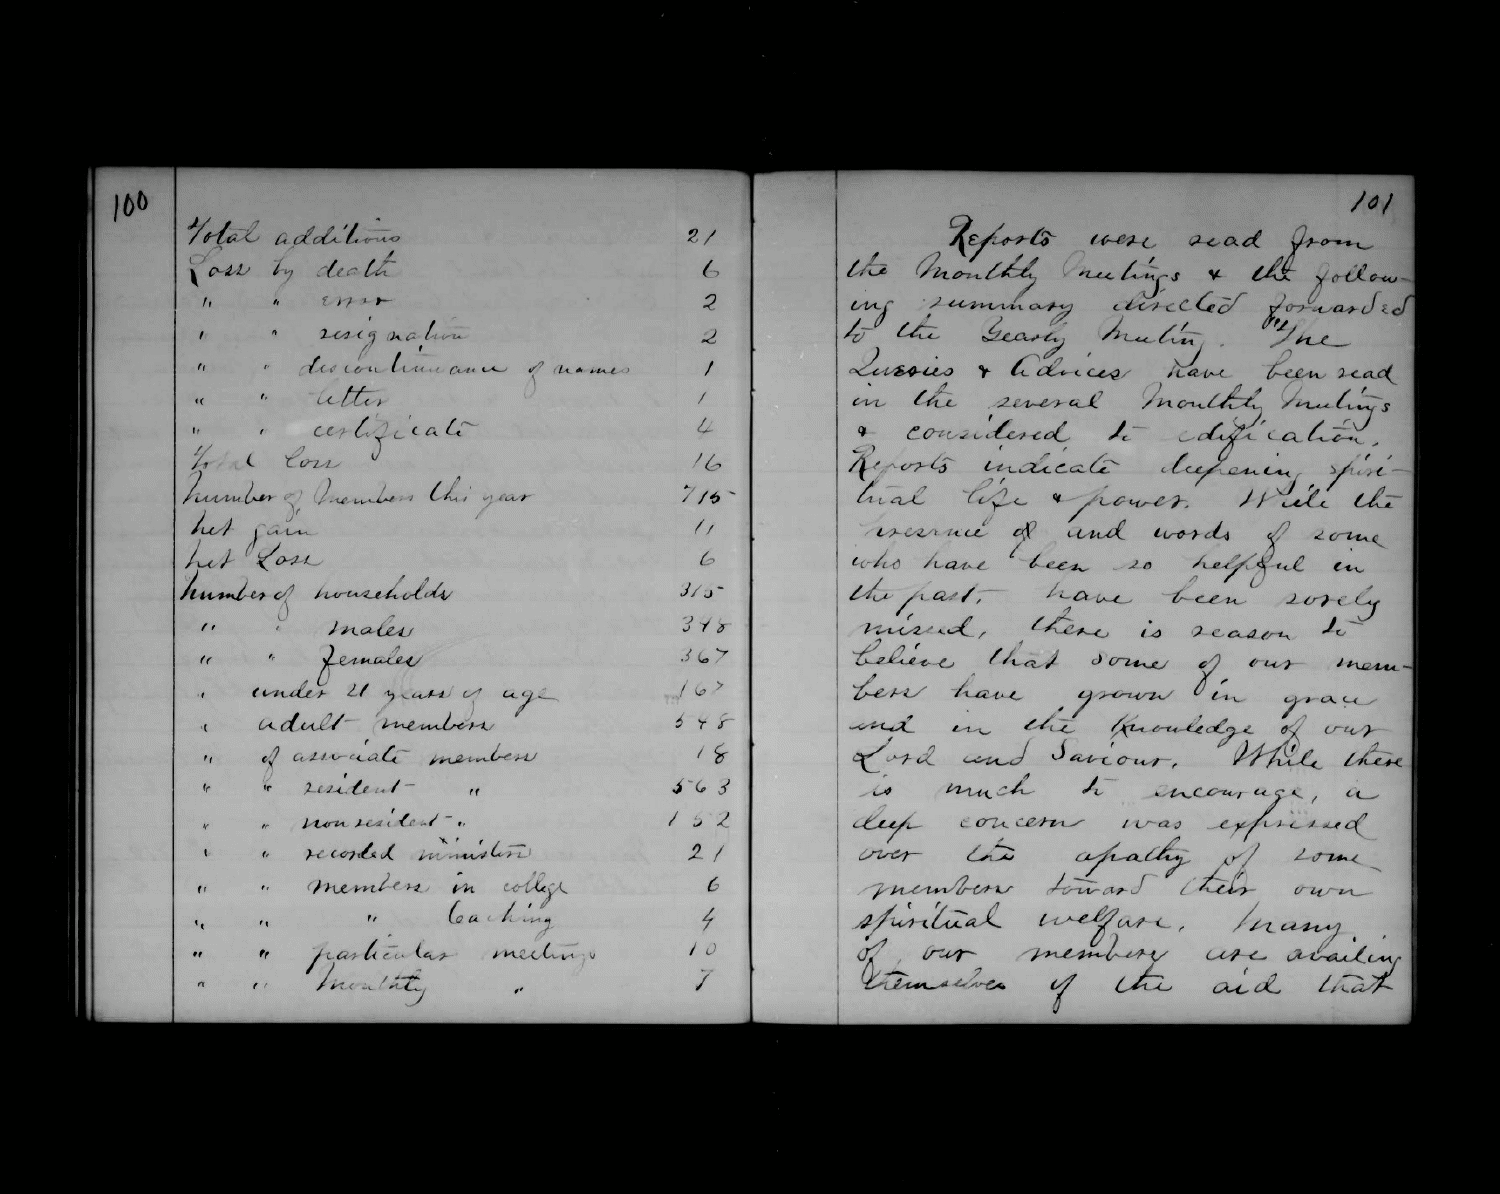 100
Total additions 21
Loss by death 6
" " error 2
" " resignation 2
" " discontinuance of names 1
" " letter 1
" " certificate 4
Total loss 16
Number of Members this year 715
Net gain 11
Net Loss 6
Number of households 315
" " males 348
" " females 367
" under 21 years of age 167
" adult members 548
" of associate members 18
" " resident " 563
" " nonresident " 152
" " recorded ministers 21
" " members in college 6
" " " teaching 4
" " particular meetings 10
" " Monthly " 7
101
Reports were read from
the Monthly Meetings & the follow-
ing summary directed forwarded
to the Yearly Meeting. "The
Queries & Advices have been read
in the several Monthly Meetings
& considered to edification.
Reports indicate deepening spiri-
tual life & power. While the
presence of and words of some
who have been so helpful in
the past, have been sorely
missed, there is reason to
believe that some of our mem-
bers have grown in grace
and in the knowledge of our
Lord and Saviour. While there
is much to encourage, a
deep concern was expressed
over the apathy of some
members toward their own
spiritual welfare. Many
of our members are availing
themselves of the aid that